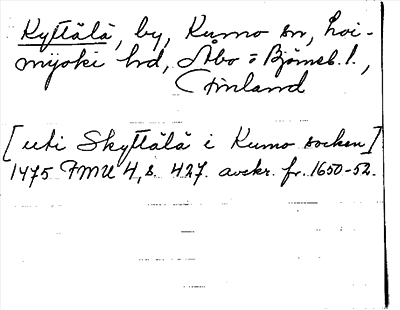 Kyttälä, by, Kumo sn, Loi-
mijoki hd, Åbo = Björneb. l.,
Finland
[uti Skyttälä i Kumo socken]
1475 FMU 4, s. 427. avskr. fr. 1650-52.